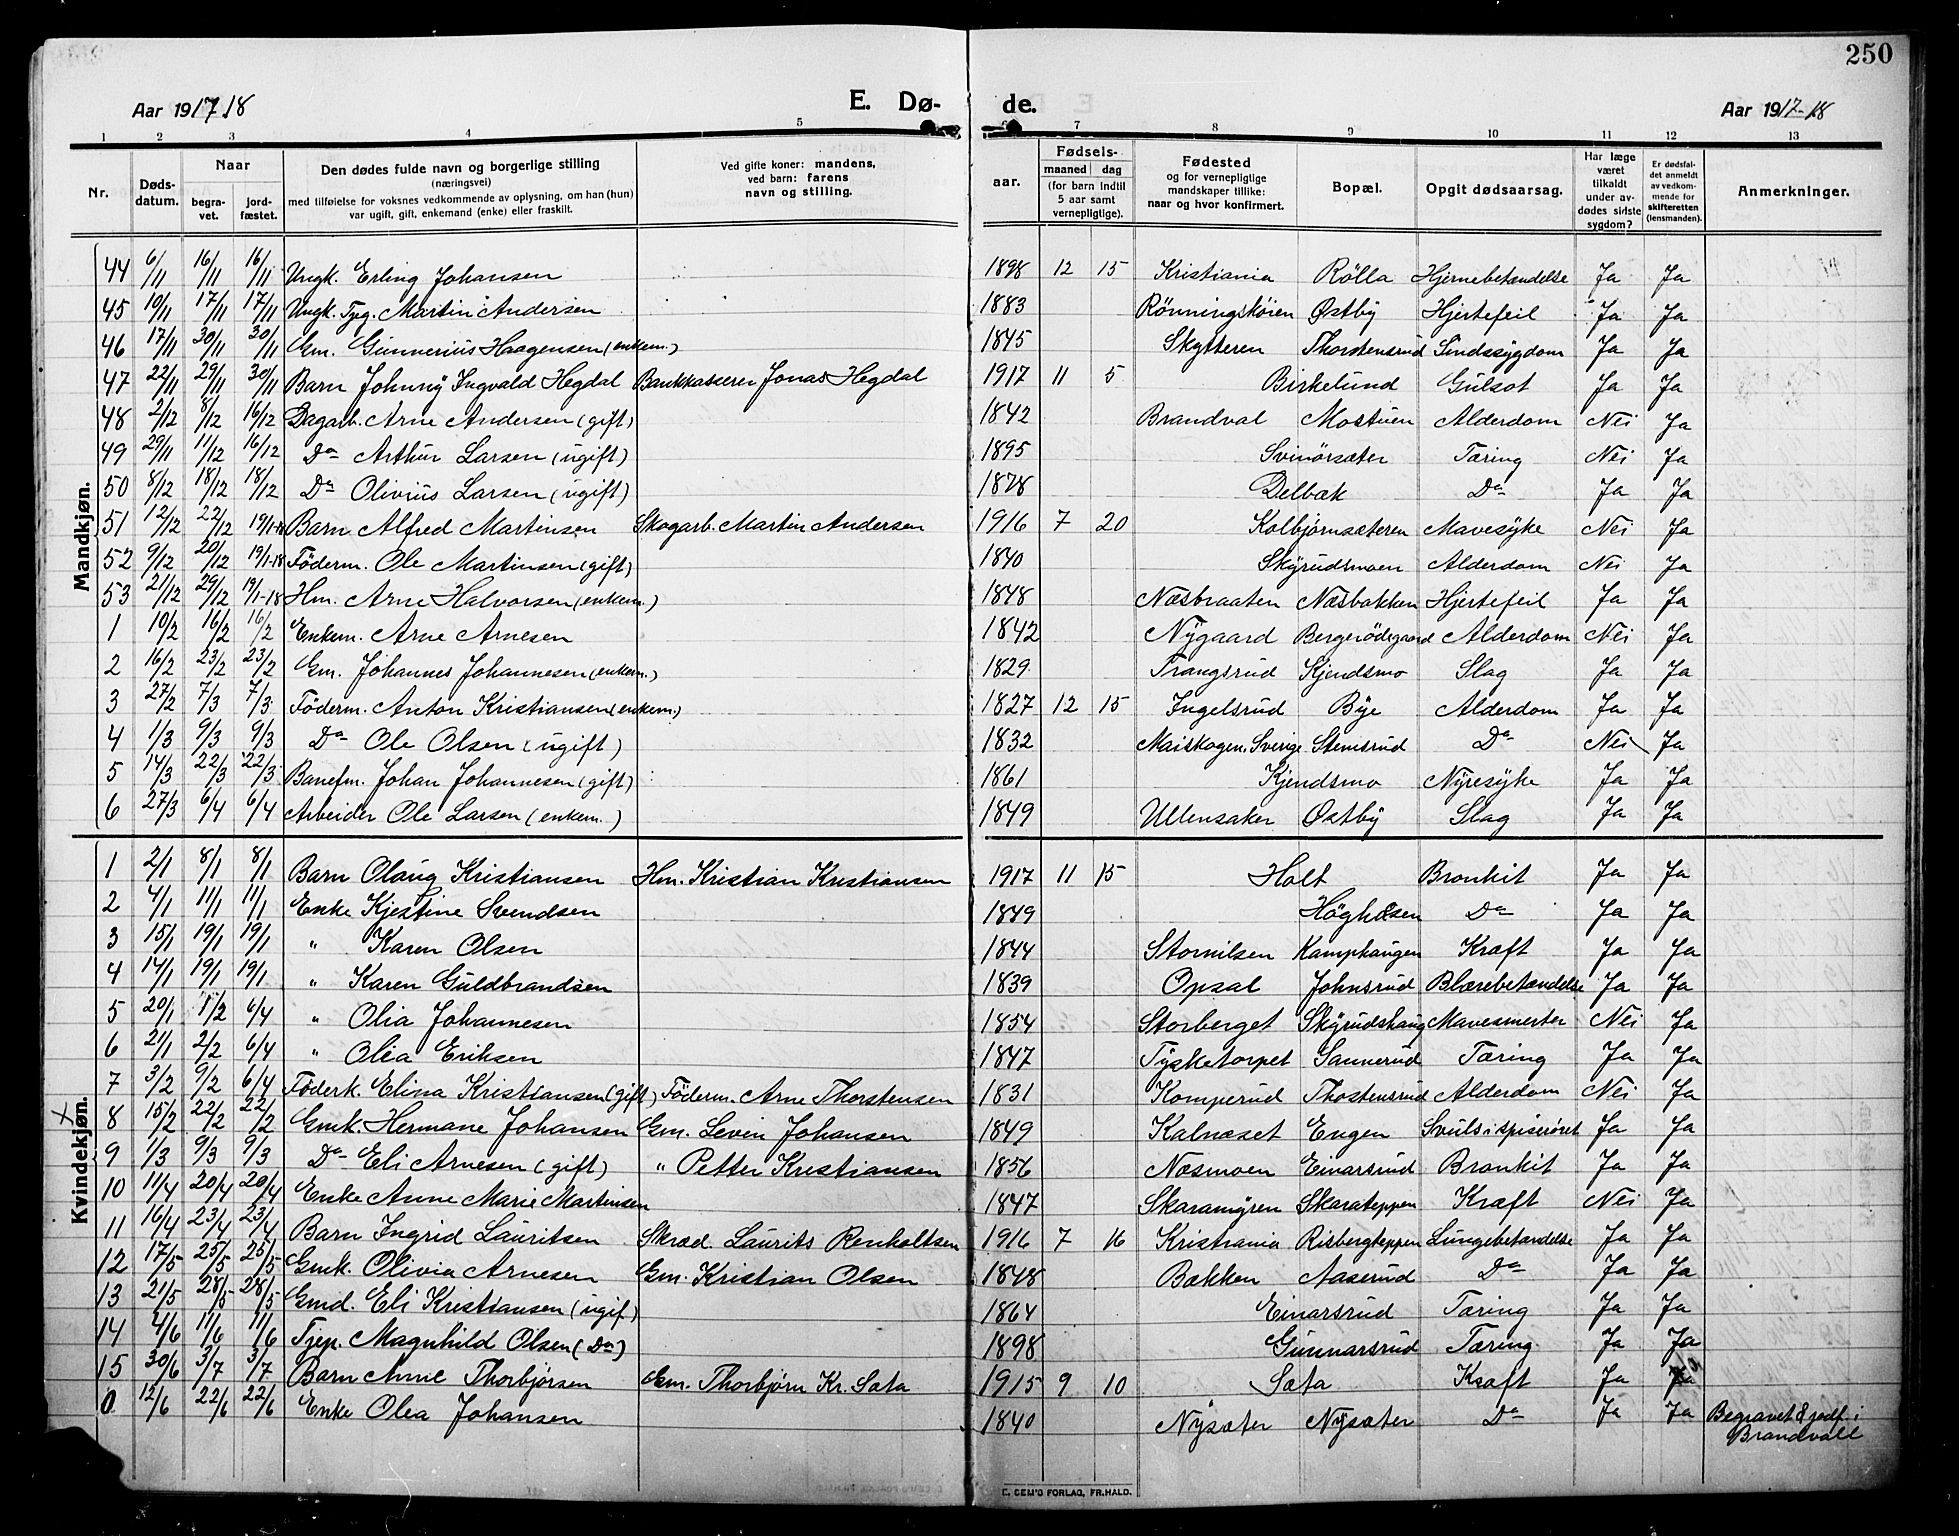 250
Aar 1917-18 E. Dø- de. Aar 1917-18
1 2 3 4 5 6 7 8 9 10 11 12 13
Nr. Døds-datum. Naar begra-vet. jord-fæstet. Den dødes fulde navn og borgerlige stilling (næringsvei) med tilføielse for voksnes vedkommende av oplysning, om han (hun) var ugift, gift, enkemand (enke) eller fraskilt. Ved gifte koner: mandens, ved barn: farens navn og stilling. aar. Fødsels- maaned dag (for barn indtil 5 aar samt vernepligtige). Fødested og for vernepligtige mandskaper tillike: naar og hvor konfirmert. Bopæl. Opgit dødsaarsag. Har læge været tilkaldt under av-dødes sidste sygdom? Er dødsfal-det anmeldt av vedkom-mende for skifteretten (lensmanden). Anmerkninger.
Mandkjøn.
44 6/11 16/11 16/11 Ungk. Erling Johansen 1898 12 15 Kristiania Rølla Hjernebetændelse Ja Ja
45 10/11 17/11 17/11 Ungk. Tjeg. Martin Andersen 1883 Rönningskóien Østby Hjertefeil Ja Ja
46 17/11 30/11 30/11 Gm. Gunnerius Haagensen (enkem.) 1845 Skytteren Thorstensrud Sindssygdom Ja Ja
47 22/11 29/11 30/11 Barn Johnny Ingvald Hegdal Bankkasserer Jonas Hegdal 1917 11 5 Birkelund Gulsot Ja Ja
48 2/12 8/12 16/12 Dagarb. Arne Andersen (gift) 1842 Brandval Mostuen Alderdom Nei Ja
49 29/11 11/12 16/12 Do Arthur Larsen (ugift) 1895 Svinörsæter Tæring Nei Ja
50 8/12 18/12 18/12 Do Olivius Larsen (ugift) 1878 Delbæk Do Ja Ja
51 12/12 22/12 19/1-18 Barn Alfred Martinsen Skogarb. Martin Andersen 1916 7 20 Kolbjörnsæteren Mavesyke Nei Ja
52 9/12 20/12 19/1-18 Föderm. Ole Martinsen (gift) 1840 Skyrudsmoen Alderdom Nei Ja
53 21/12 29/12 19/1-18 Hm. Arne Halvorsen (enkem.) 1848 Næsbraaten Næsbakken Hjertefeil Ja Ja
1 10/2 16/2 16/2 Enkem. Arne Arnesen 1842 Nygaard Bergerödegaard Alderdom Nei Ja
2 16/2 23/2 23/2 Gm. Johannes Johannesen (enkem.) 1829 Trangsrud Kjendsmo Slag Ja Ja
3 27/2 7/3 7/3 Föderm. Anton Kristiansen (enkem.) 1827 12 15 Ingelsrud Bye Alderdom Ja Ja
4 1/3 9/3 9/3 Do Ole Olsen (ugift) 1832 Maiskogen, Sverige Stemsrud Do Nei Ja
5 14/3 22/3 22/3 Banefm. Johan Johannesen (gift) 1861 Kjendsmo Nyresyke Ja Ja
6 27/3 6/4 6/4 Arbeider Ole Larsen (enkem.) 1849 Ullensaker Østby Slag Ja Ja
Kvindekjøn.
1 2/1 8/1 8/1 Barn Olaug Kristiansen Hm. Kristian Kristiansen 1917 11 15 Holt Bronkit Ja Ja
2 4/1 11/1 11/1 Enke Kjestine Svendsen 1849 Do Ja Ja
3 15/1 19/1 19/1 " Karen Olsen 1844 Stornilsen Kamphaugen Kræft Ja Ja
4 14/1 19/1 19/1 " Karen Guldbrandsen 1839 Opsal Johnsrud Blærebetændelse Ja Ja
5 20/1 1/2 6/4 " Olia Johannesen 1854 Storberget Skyrudshaug Mavesmerter Nei Ja
6 21/1 2/2 6/4 " Olea Eriksen 1847 Tysketorpet Sannerud Tæring Ja Ja
7 3/2 9/2 6/4 Föderk. Elina Kristiansen (gift) Föderm. Arne Thorstensen 1831 Komperud Thostensrud Alderdom Nei Ja
8 15/2 22/2 22/2 Gmk. Hermane Johansen Gm. Levin Johansen 1849 Kalnæset Engen Svulst i spiserøret Ja Ja
9 1/3 9/3 9/3 Do Eli Arnesen (gift) " Petter Kristiansen 1856 Næsmoen Einarsrud Bronkit Ja Ja
10 11/4 20/4 20/4 Enke Anne Marie Martinsen 1847 Skaramyren Skarateppen Kræft Nei Ja
11 16/4 23/4 23/4 Barn Ingrid Lauritsen Skræd. Laurits Renholtsen 1916 7 16 Kristiania Risbergteppen Lungebetændelse Ja Ja
12 17/5 25/5 25/5 Gmk. Olivia Arnesen Gm. Kristian Olsen 1848 Bakken Aaserud Do Ja Ja
13 21/5 28/5 28/5 Gmd. Eli Kristiansen (ugif.) 1864 Einarsrud Tæring Ja Ja
14 4/6 11/6 11/6 Tjep. Magnhild Olsen (Do) 1898 Gunnarsrud Tæring Ja Ja
15 30/6 3/7 3/7 Barn Anne Thorbjörsen Gm. Thorbjørn Kr. Sæta 1915 9 10 Sæta Kræft Ja Ja
0 12/6 22/6 22/6 Enke Olea Johansen 1840 Nysæter Nysæter Do Ja Ja Begravet & jordf. i Brandvall
E. SEM'S FORLAG, FR.HALD.